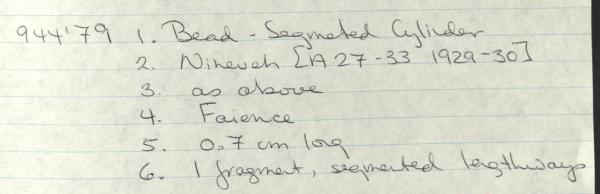 944'79 1. Bead - Segmeted Cylinder
2. Nineveh [A 27-33 1929-30]
3. as above
4. Faience
5. 0.7 cm long
6. 1 fragment, segmented lengthways